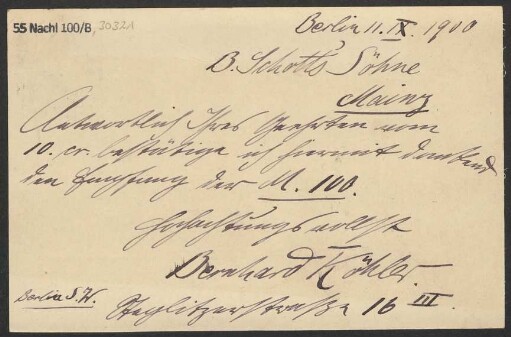 55 Nachl 100/B, 30321
Berlin 11. IX. 1900
B. Schott's Söhne
Mainz
Antwortlich Ihres Geehrten vom
10. cr. bestätige ich hiermit dankend
den Empfang der M. 100.
Hochachtungsvollst
Bernhard Köhler.
Berlin S.W. Steglitzerstraße 16 III.